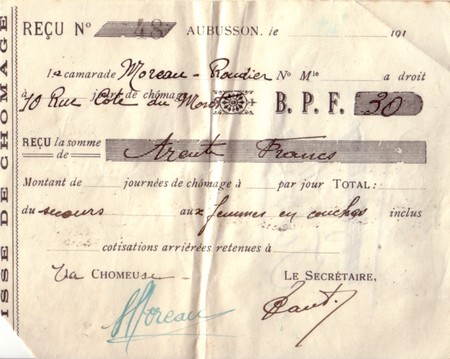 REÇU N° 48 AUBUSSON, le 191
La camarade Moreau-Roudier N° Mle a droit
à jours de chômage B. P. F. 30
10 Rue Côte du
REÇU la somme de trente Francs
Montant de journées de chômage à par jour TOTAL:
du secours aux femmes en couches inclus
cotisations arriérées retenues à
La CHOMEUSE, LE SECRÉTAIRE,
Moreau
ISSE DE CHOMAGE